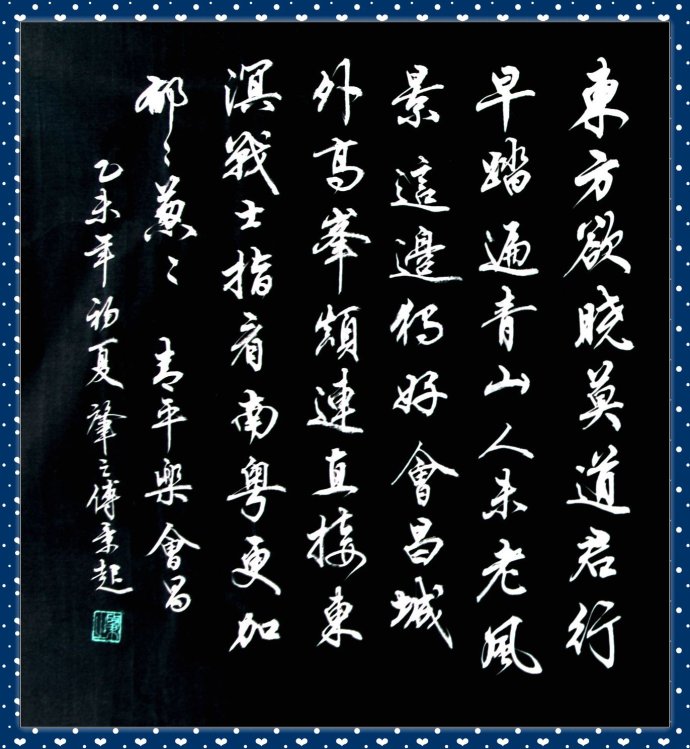 東方欲曉莫道君行
早踏遍青山人未老風
景這邊獨好會昌城
外高峯顛連直接東
溟戰士指看南粵更加
郁々蔥々 青平樂會昌
乙未年初夏肇之傅秉起